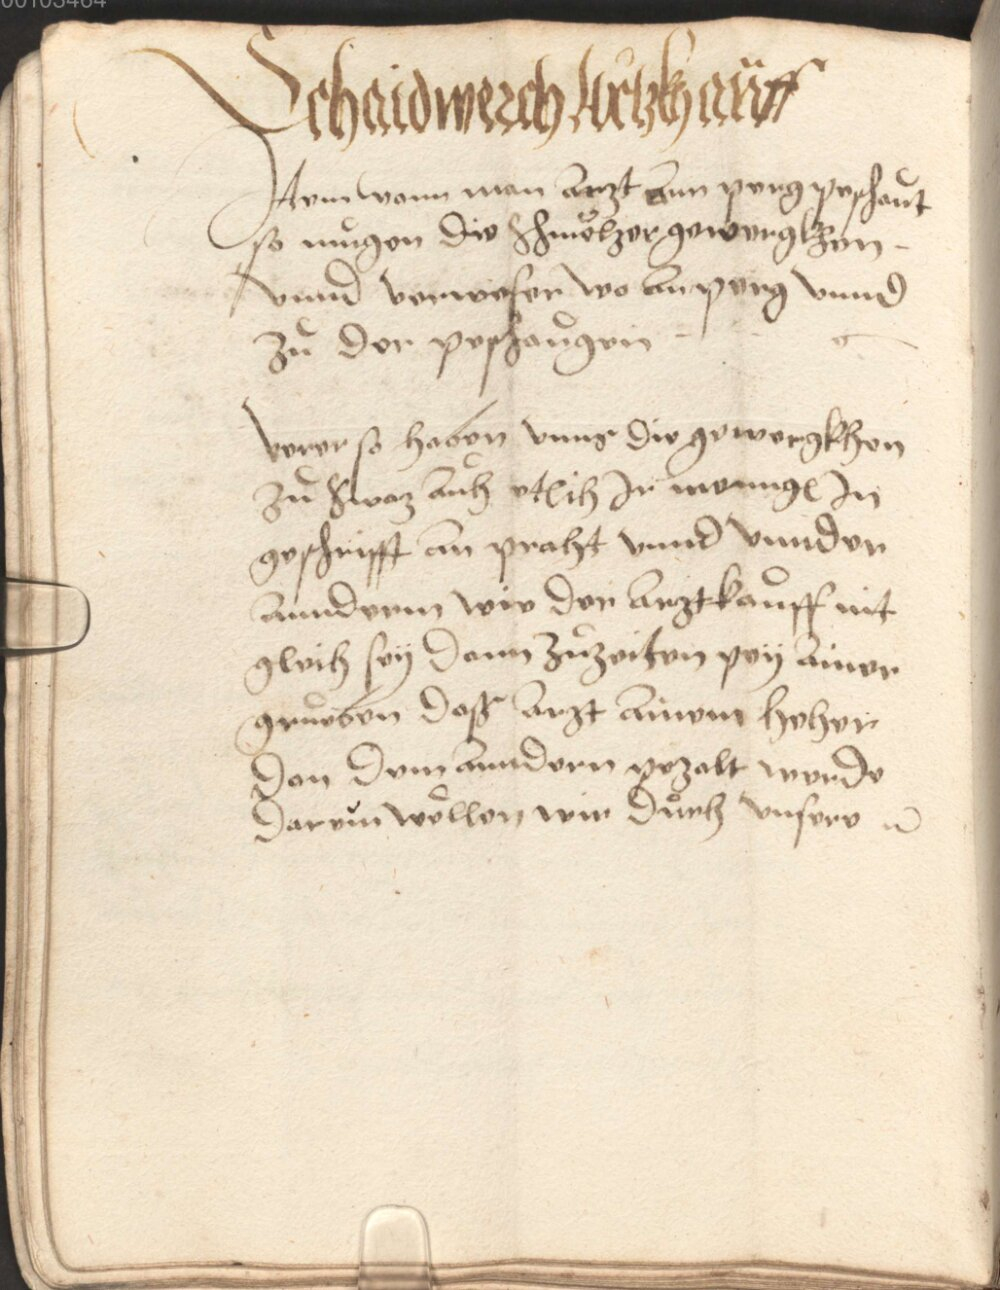 00103464
Schaidwerch Artzkhauff
Item wann man ärtzt am perg peschaut
so mugen die Schmölzer gewergkhen
vnnd verweser wo am perg vnnd
zu der peschaugen
verer so haben vnns die gewergkhen
zu Swaz auch etlich Ir menngl In
geschrifft an pracht vnnd vnnder
annderm wie der Arztkauff nit
gleich seÿ dann zu zeiten peÿ ainer
grueben daß arzt ainem heher
dan dem anndern pezalt werde
darein wöllen wir durch vnsere